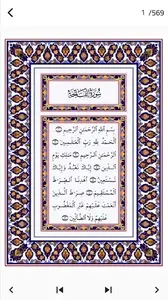 1 /569
سورة الفاتحة
بِسْمِ اللَّهِ الرَّحْمَٰنِ الرَّحِيمِ ۝
الْحَمْدُ لِلَّهِ رَبِّ الْعَالَمِينَ ۝
الرَّحْمَٰنِ الرَّحِيمِ ۝ مَالِكِ يَوْمِ
الدِّينِ ۝ إِيَّاكَ نَعْبُدُ وَإِيَّاكَ
نَسْتَعِينُ ۝ اهْدِنَا الصِّرَاطَ
الْمُسْتَقِيمَ ۝ صِرَاطَ الَّذِينَ
أَنْعَمْتَ عَلَيْهِمْ غَيْرِ الْمَغْضُوبِ
عَلَيْهِمْ وَلَا الضَّالِّينَ ۝